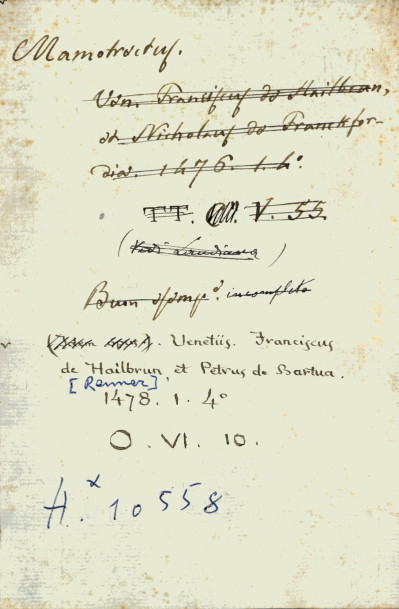 Mamotrectus.
Ven. Franciscus de Hailbrun,
et Nicholaus de Franckfor-
dia. 1476. 1. 4º.
TT. V. 55.
(vedi Laudiana)
Buon esemp.º incompleto
. Venetiis. Franciscus
de Hailbrun et Petrus de Bartua.
[Renner]
1478. 1. 4º
O. VI. 10.
H.x 10558